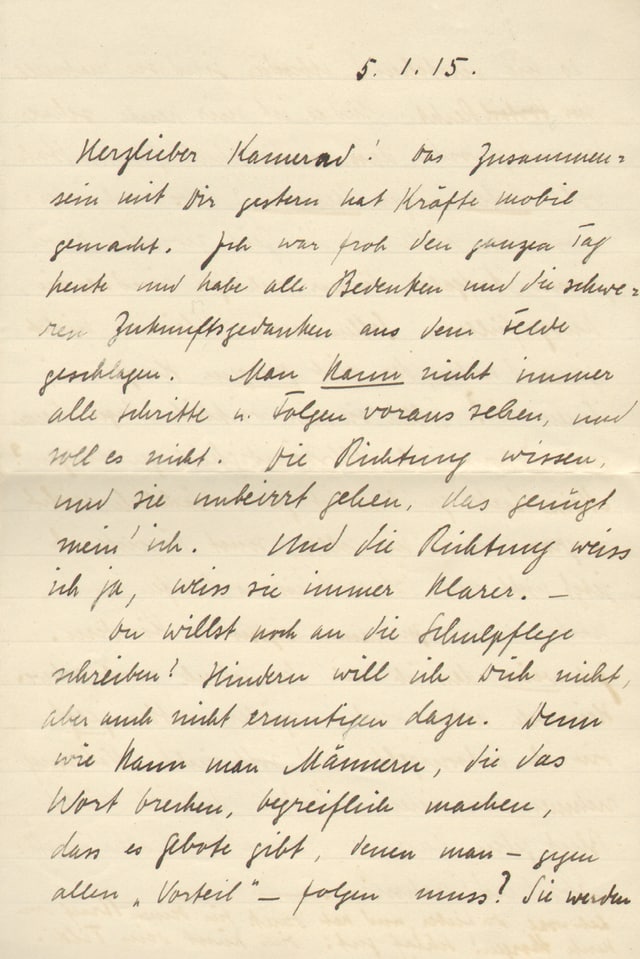 5. 1. 15.
Herzlieber Kamerad! Das Zusammen=
sein mit Dir gestern hat Kräfte mobil
gemacht. Ich war froh den ganzen Tag
heute und habe alle Bedenken und die schwe=
ren Zukunftsgedanken aus dem Felde
geschlagen. Man kann nicht immer
alle Schritte u. Folgen voraus sehen, und
soll es nicht. Die Richtung wissen,
und sie unbeirrt gehen, das genügt
mein' ich. Und die Richtung weiss
ich ja, weiss sie immer klarer. —
Du willst noch an die Schulpflege
schreiben? Hindern will ich Dich nicht,
aber auch nicht ermutigen dazu. Denn
wie kann man Männern, die das
Wort brechen, begreiflich machen,
dass es Gebote gibt, denen man – gegen
allen „Vorteil" – folgen muss? Sie werden